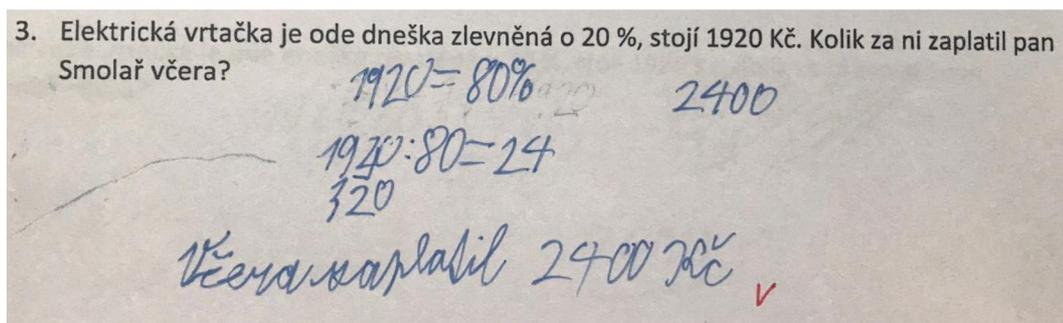 3. Elektrická vrtačka je ode dneška zlevněná o 20 %, stojí 1920 Kč. Kolik za ni zaplatil pan
Smolař včera?
1920 = 80%
2400
1920:80=24
320
Včera zaplatil 2400 Kč